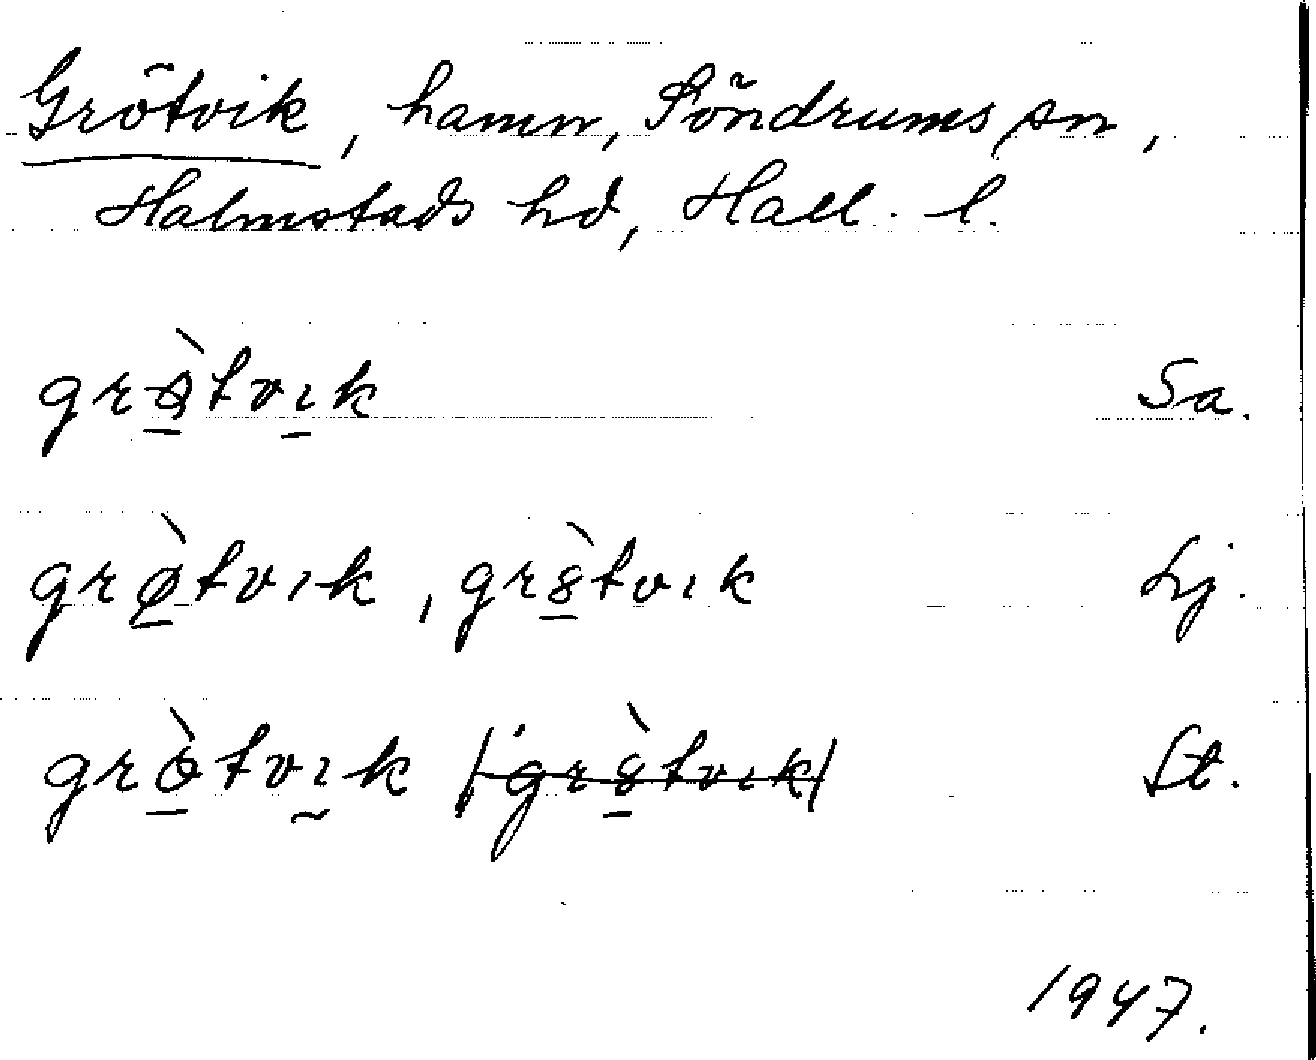 Grötvik, hamn, Söndrums sn,
Halmstads hd, Hall. l.
grø̀tvık Sa.
grø̀tvık, gr8̀tvık Lj.
grò̱tvık (gr8̀tvık) St.
1947.